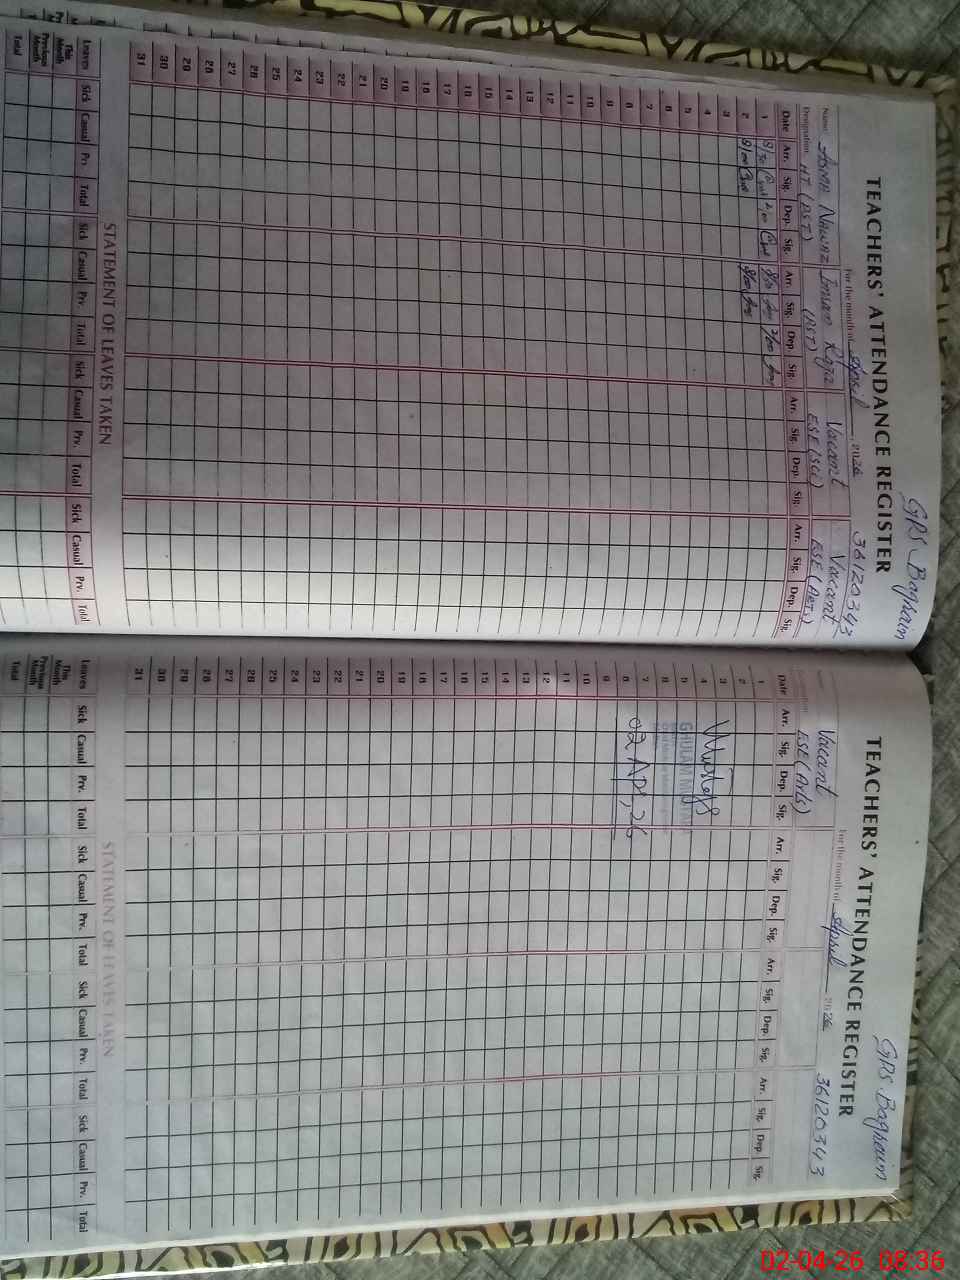 GRS Baghain
TEACHERS' ATTENDANCE REGISTER
36120343
For the month of April 2026
Name Asma Nawaz Imran Raja Vacant Vacant
Designation HT (PST) (PST) ESE(Sci) ESE(Arts)
Date Arr. Sig. Dep. Sig. Arr. Sig. Dep. Sig. Arr. Sig. Dep. Sig. Arr. Sig. Dep. Sig.
1 8/30 2/00 2/00
2 8/00 8/00
3
4
5
6
7
8
9
10
11
12
13
14
15
16
17
18
19
20
21
22
23
24
25
26
27
28
29
30
31
STATEMENT OF LEAVES TAKEN
Leaves Sick Casual Prv. Total Sick Casual Prv. Total Sick Casual Prv. Total Sick Casual Prv. Total
This Month
Previous Month
Total
GRS Baghain
TEACHERS' ATTENDANCE REGISTER
36120343
For the month of April 2026
Vacant
ESE(Arts)
Date Arr. Sig. Dep. Sig. Arr. Sig. Dep. Sig. Arr. Sig. Dep. Sig. Arr. Sig. Dep. Sig.
1
2
3
4
5
6
7
8
9
10
11
12
13
14
15
16
17
18
19
20
21
22
23
24
25
26
27
28
29
30
31
GHULAM
02 APr, 26
STATEMENT OF LEAVES TAKEN
Leaves Sick Casual Prv. Total Sick Casual Prv. Total Sick Casual Prv. Total Sick Casual Prv. Total
This Month
Previous Month
Total
02-04-26 08:36